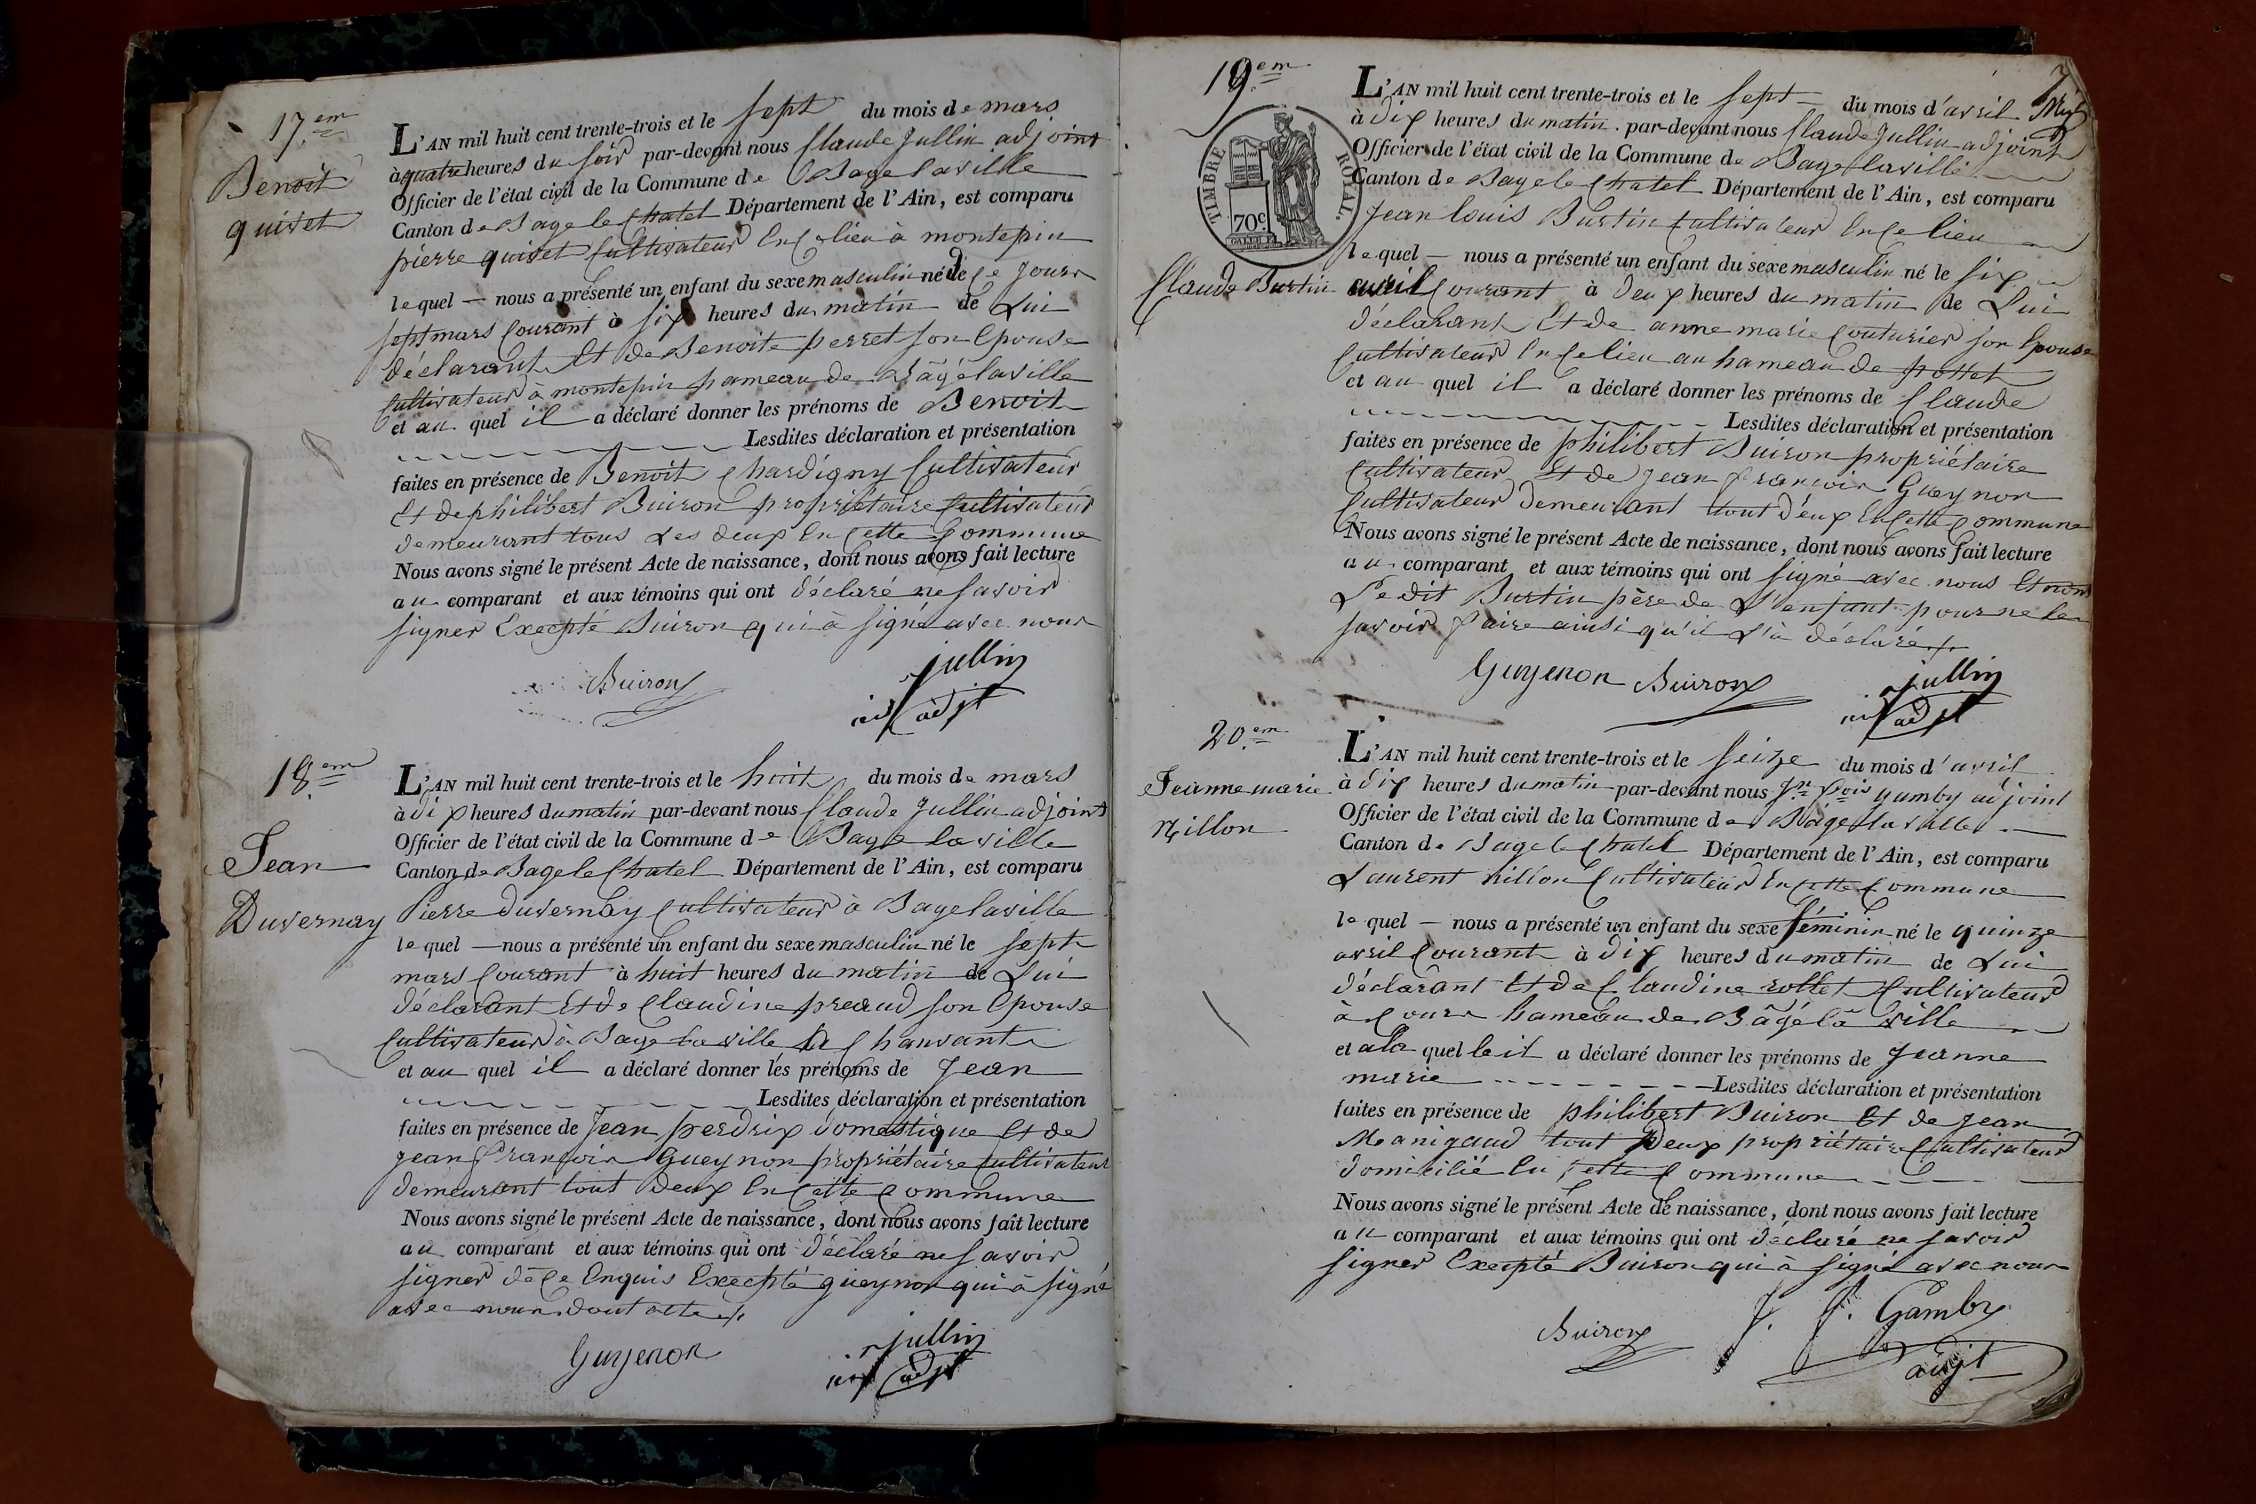 17.em
Benoit
quivet
L'AN mil huit cent trente-trois et le sept du mois de mars
à quatre heures du soir par-devant nous Claude Jullin adjoint
Officier de l'état civil de la Commune de Bage laville
Canton de Bage le Chatel Département de l'Ain, est comparu
pierre quivet Cultivateur En Ce lieu à montepin
le quel — nous a présenté un enfant du sexe masculin né de Ce Jour
sept mars Courant à six heures du matin de Lui
déclarant Et de Benoite perret son Epouse
Cultivateur à montepin hameau de Bâgé laville
et au quel il a déclaré donner les prénoms de Benoit
Lesdites déclaration et présentation
faites en présence de Benoit Chardigny Cultivateur
Et de philibert Buiron propriétaire Cultivateur
demeurant tous Les deux En Cette Commune
Nous avons signé le présent Acte de naissance, dont nous avons fait lecture
au comparant et aux témoins qui ont déclaré ne savoir
signer Excepté Buiron qui à signé avec nous
Buiron
jullin
adjt
18.em
Jean
Duvernay
L'AN mil huit cent trente-trois et le huit du mois de mars
à dix heures du matin par-devant nous Claude Jullin adjoint
Officier de l'état civil de la Commune de Bage la ville
Canton de Bage le Chatel Département de l'Ain, est comparu
Pierre duvernay Cultivateur à Bage laville
le quel — nous a présenté un enfant du sexe masculin né le sept
mars Courant à huit heures du matin de Lui
déclarant Et de Claudine preaud son Epouse
Cultivateur à Bage La ville Chanvant
et au quel il a déclaré donner les prénoms de Jean
Lesdites déclaration et présentation
faites en présence de Jean perdrix domestique Et de
Jean François Gueynon propriétaire Cultivateur
demeurant tout deux En Cette Commune
Nous avons signé le présent Acte de naissance, dont nous avons fait lecture
au comparant et aux témoins qui ont déclaré ne savoir
signer de Ce Enquis Excepté gueynon qui à signé
avec nous dont acte
Guyenon
jullin
adjt
7
19.em
Claude Burtin
TIMBRE ROYAL.
70c.
L'AN mil huit cent trente-trois et le sept du mois d'avril
à dix heures du matin par-devant nous Claude Jullin adjoint
Officier de l'état civil de la Commune de Bage laville
Canton de Bage le Chatel Département de l'Ain, est comparu
Jean louis Burtin Cultivateur En Ce lieu
le quel — nous a présenté un enfant du sexe masculin né le six
avril Courant à deux heures du matin de Lui
déclarant Et de anne marie Couturier son Epouse
Cultivateur En Ce lieu au hameau de pottet
et au quel il a déclaré donner les prénoms de Claude
Lesdites déclaration et présentation
faites en présence de philibert Buiron propriétaire
Cultivateur Et de Jean François Gueynon
Cultivateur demeurant tout deux En Cette Commune
Nous avons signé le présent Acte de naissance, dont nous avons fait lecture
au comparant et aux témoins qui ont signé avec nous Et non
Le dit Burtin père de L'enfant pour ne le
savoir faire ainsi qu'il L'a déclaré
Guyenon Buiron
jullin
adjt
20.em
Jeanne marie
Nillon
L'AN mil huit cent trente-trois et le seize du mois d'avril
à dix heures du matin par-devant nous Jn fois gamby adjoint
Officier de l'état civil de la Commune de Bâge la ville
Canton de Bage le Chatel Département de l'Ain, est comparu
Laurent nillon Cultivateur En Cette Commune
le quel — nous a présenté un enfant du sexe féminin né le quinze
avril Courant à dix heures du matin de Lui
déclarant Et de Claudine rollet Cultivateur
à Cours hameau de Bâgé la ville
et a la quel le il a déclaré donner les prénoms de Jeanne
marie Lesdites déclaration et présentation
faites en présence de philibert Buiron Et de Jean
Manigaud tout deux propriétaire Cultivateur
domicilié En Cette Commune
Nous avons signé le présent Acte de naissance, dont nous avons fait lecture
au comparant et aux témoins qui ont déclaré ne savoir
signer Excepté Buiron qui à signé avec nous
Buiron
J. f. Gamby
adjt